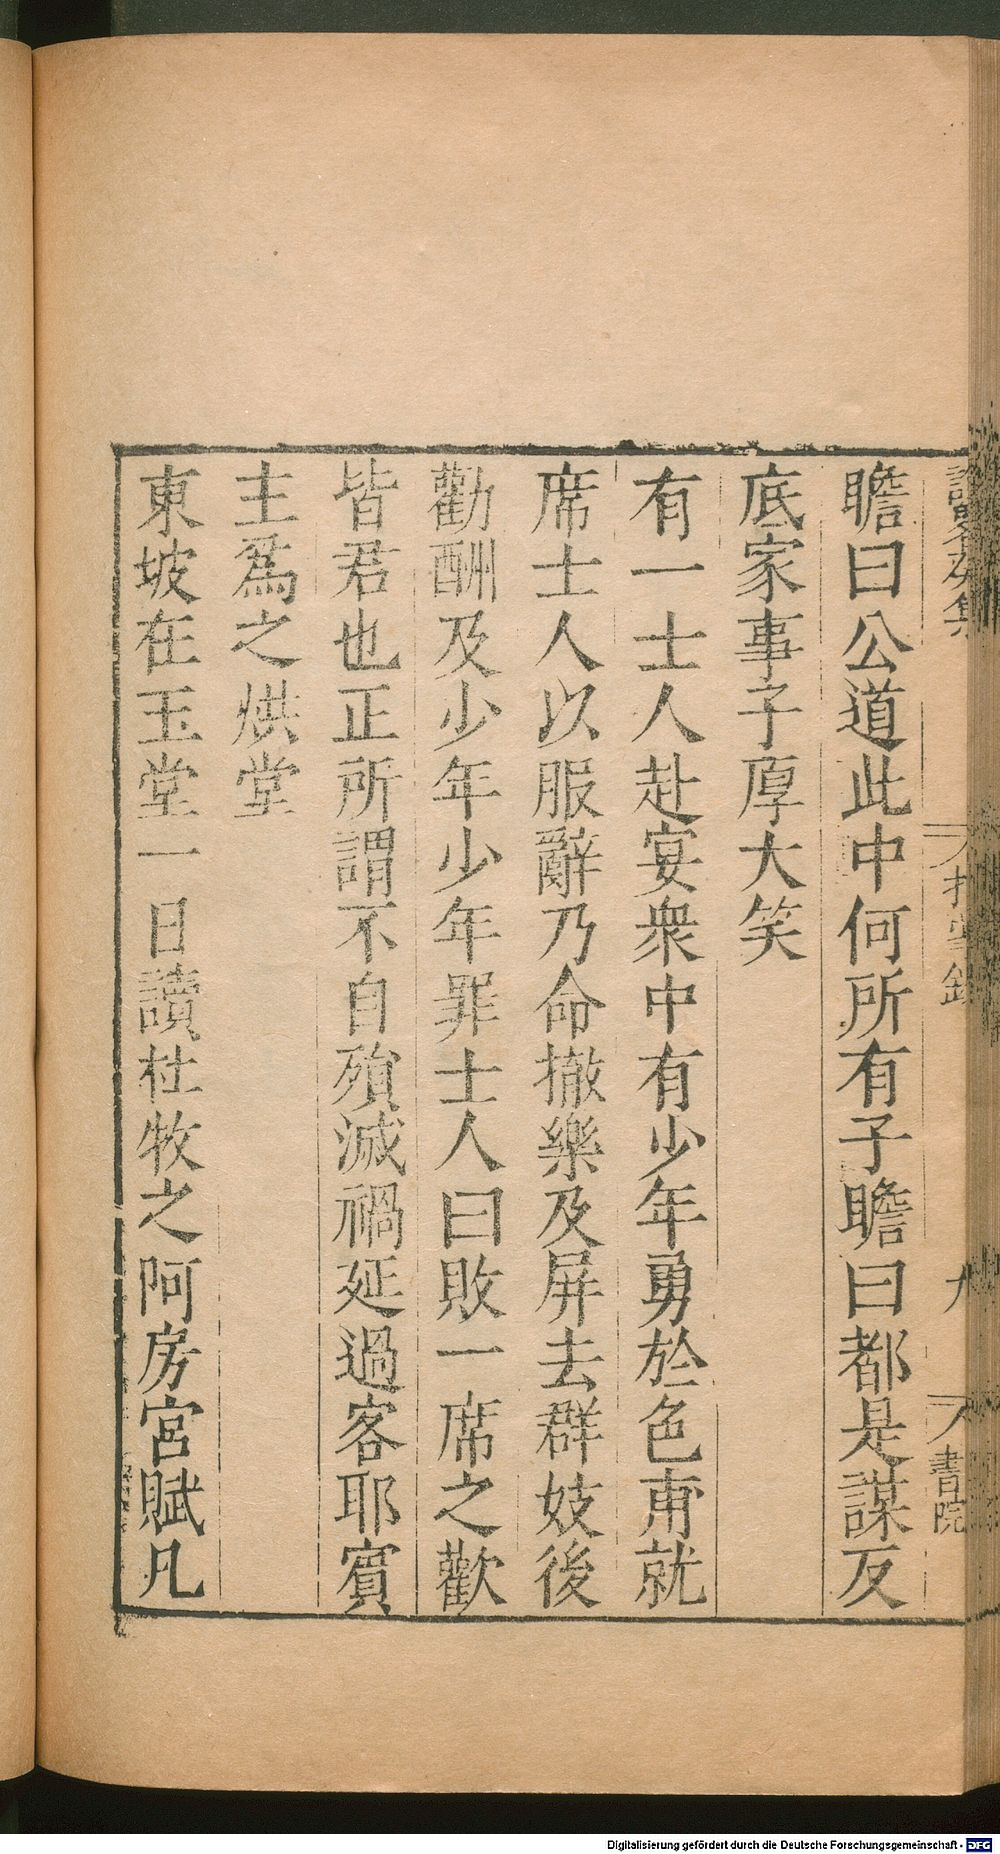 瞻曰公道此中何所有子瞻曰都是謀反
底家事子厚大笑
有一士人赴宴衆中有少年勇於色甫就
席士人以服辭乃命撤樂及屏去群妓後
勸酬及少年少年罪士人曰敗一席之歡
皆君也正所謂不自殞滅禍延過客耶賓
主為之烘堂
東坡在玉堂一日讀杜牧之阿房宮賦凡
書院
Digitalisierung gefördert durch die Deutsche Forschungsgemeinschaft - DFG